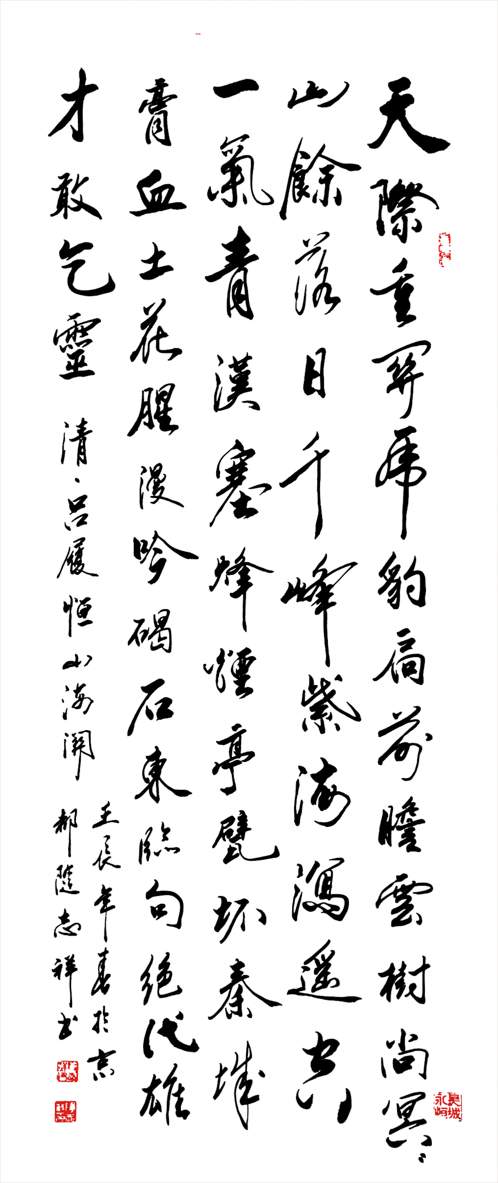 天際重關虎豹扃前瞻雲樹尚冥〻
山餘落日千峰紫海瀉遥空
一氣青漢塞烽煙亭甓坏秦城
膏血土花腥漫吟碣石東臨句絕代雄
才敢乞靈 清·吕履恒山海關
壬辰年春於京
都隨志祥书